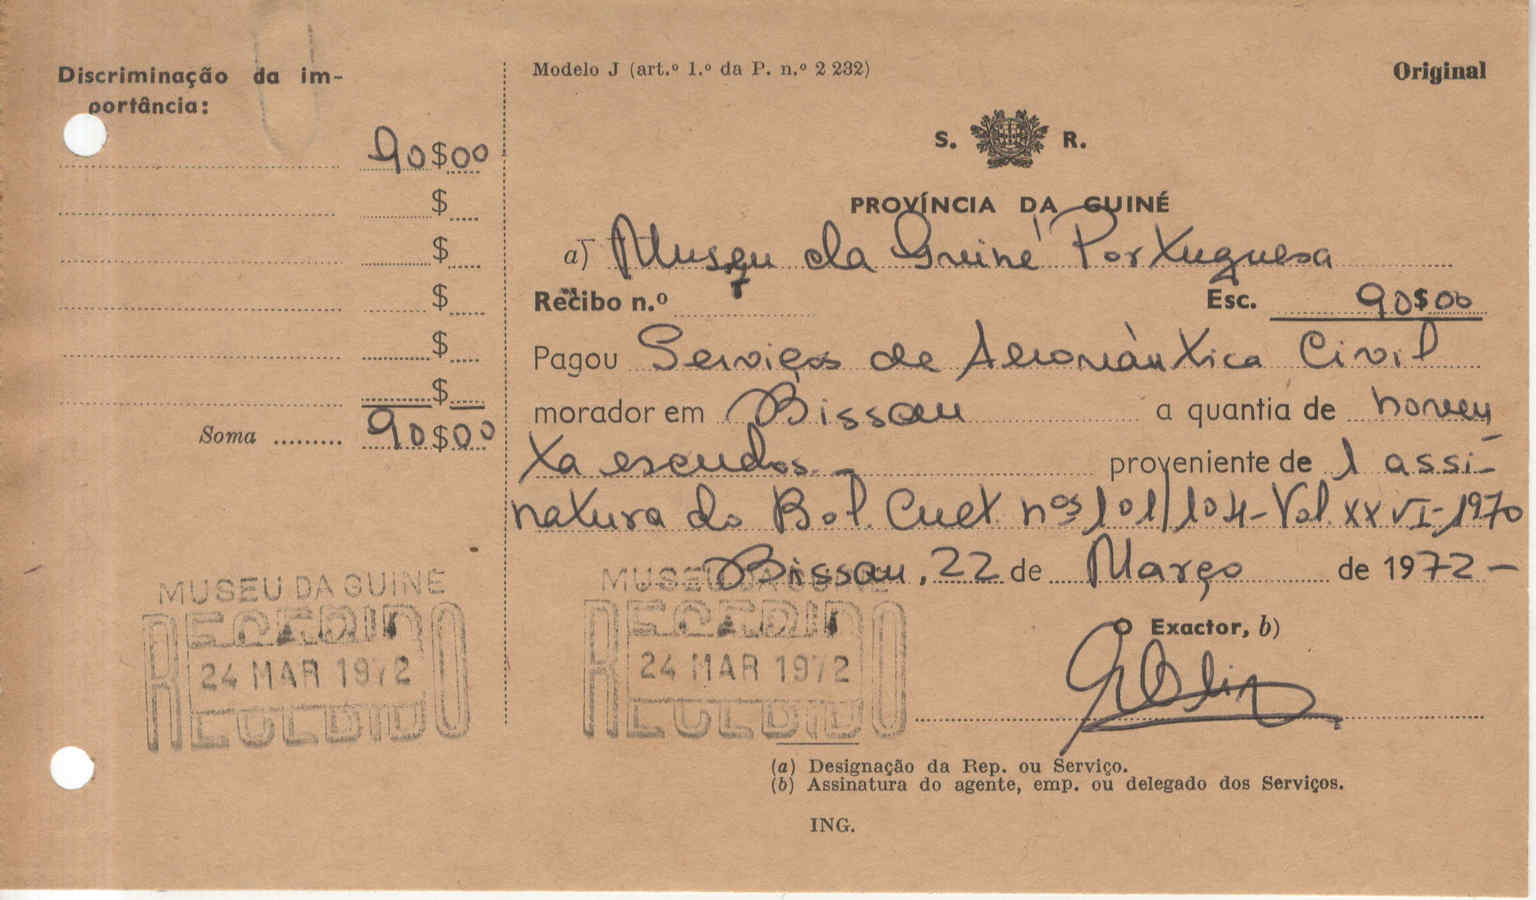 Discriminação da im-
portância:
90$00
$
$
$
$
$
Soma ......... 90$00
Modelo J (art.º 1.º da P. n.º 2 232)
Original
S. R.
PROVÍNCIA DA GUINÉ
a) Museu da Guiné Portuguesa
Recibo n.º Esc. 90$00
Pagou Serviços de Aeronáutica Civil
morador em Bissau a quantia de noven
ta escudos proveniente de 1 assi-
natura do Bol. Cult. nºs 101/104-Vol. XXVI-1970
Bissau, 22 de Março de 1972-
O Exactor, b)
MUSEU DA GUINÉ
RECEBIDO
24 MAR 1972
RECEBIDO
MUSEU DA GUINÉ
RECEBIDO
24 MAR 1972
RECEBIDO
(a) Designação da Rep. ou Serviço.
(b) Assinatura do agente, emp. ou delegado dos Serviços.
ING.